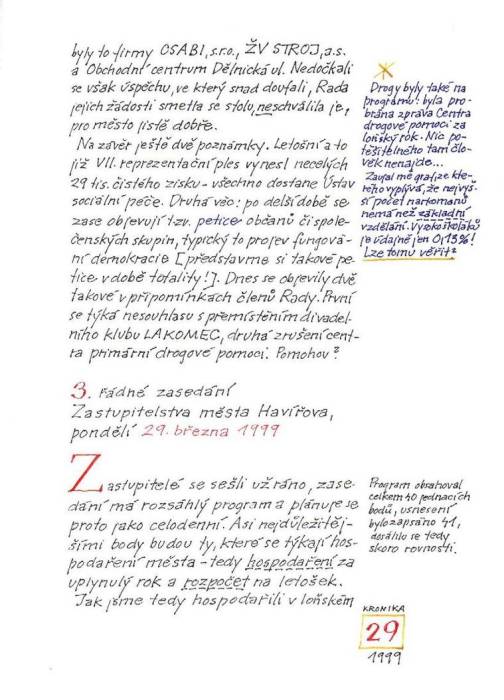 byly to firmy OSABI, s.r.o., ŽV STROJ, a.s.
a Obchodní centrum Dělnická ul. Nedočkali
se však úspěchu, ve který snad doufali, Rada
jejich žádosti smetla se stolu, neschválila je,
pro město jistě dobře.
Na závěr ještě dvě poznámky. Letošní a to
již VII. reprezentační ples vynesl necelých
29 tis. čistého zisku - všechno dostane Ústav
sociální péče. Druhá věc: po delší době se
zase objevují tzv. petice občanů či spole-
čenských skupin, typický to projev fungová-
ní demokracie [představme si takové pe-
tice v době totality!]. Dnes se objevily dvě
takové v připomínkách členů Rady. První
se týká nesouhlasu s přemístěním divadel-
ního klubu LAKOMEC, druhá zrušení cent-
ra primární drogové pomoci. Pomohou?
Drogy byly také na
programu: byla pro-
brána zpráva Centra
drogové pomoci za
loňský rok. Nic po-
těšitelného tam člo-
věk nenajde...
Zaujal mě graf, ze kte-
rého vyplývá, že nejvyš-
ší počet narkomanů
nemá než základní
vzdělání. Vysokoškoláků
je údajně jen 0,13%!
Lze tomu věřit?
3. řádné zasedání
Zastupitelstva města Havířova,
pondělí 29. března 1999
Zastupitelé se sešli už ráno, zase-
dání má rozsáhlý program a plánuje se
proto jako celodenní. Asi nejdůležitěj-
šími body budou ty, které se týkají hos-
podaření města - tedy hospodaření za
uplynulý rok a rozpočet na letošek.
Jak jsme tedy hospodařili v loňském
Program obsahoval
celkem 40 jednacích
bodů, usnesení
bylo zapsáno 41,
dosáhlo se tedy
skoro rovnosti.
KRONIKA
29
1999